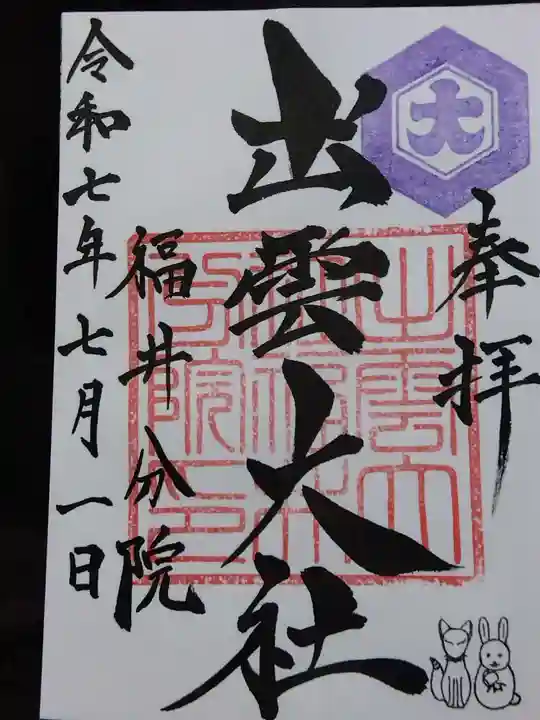 大
奉拝
出雲大社
福井分院
令和七年七月一日